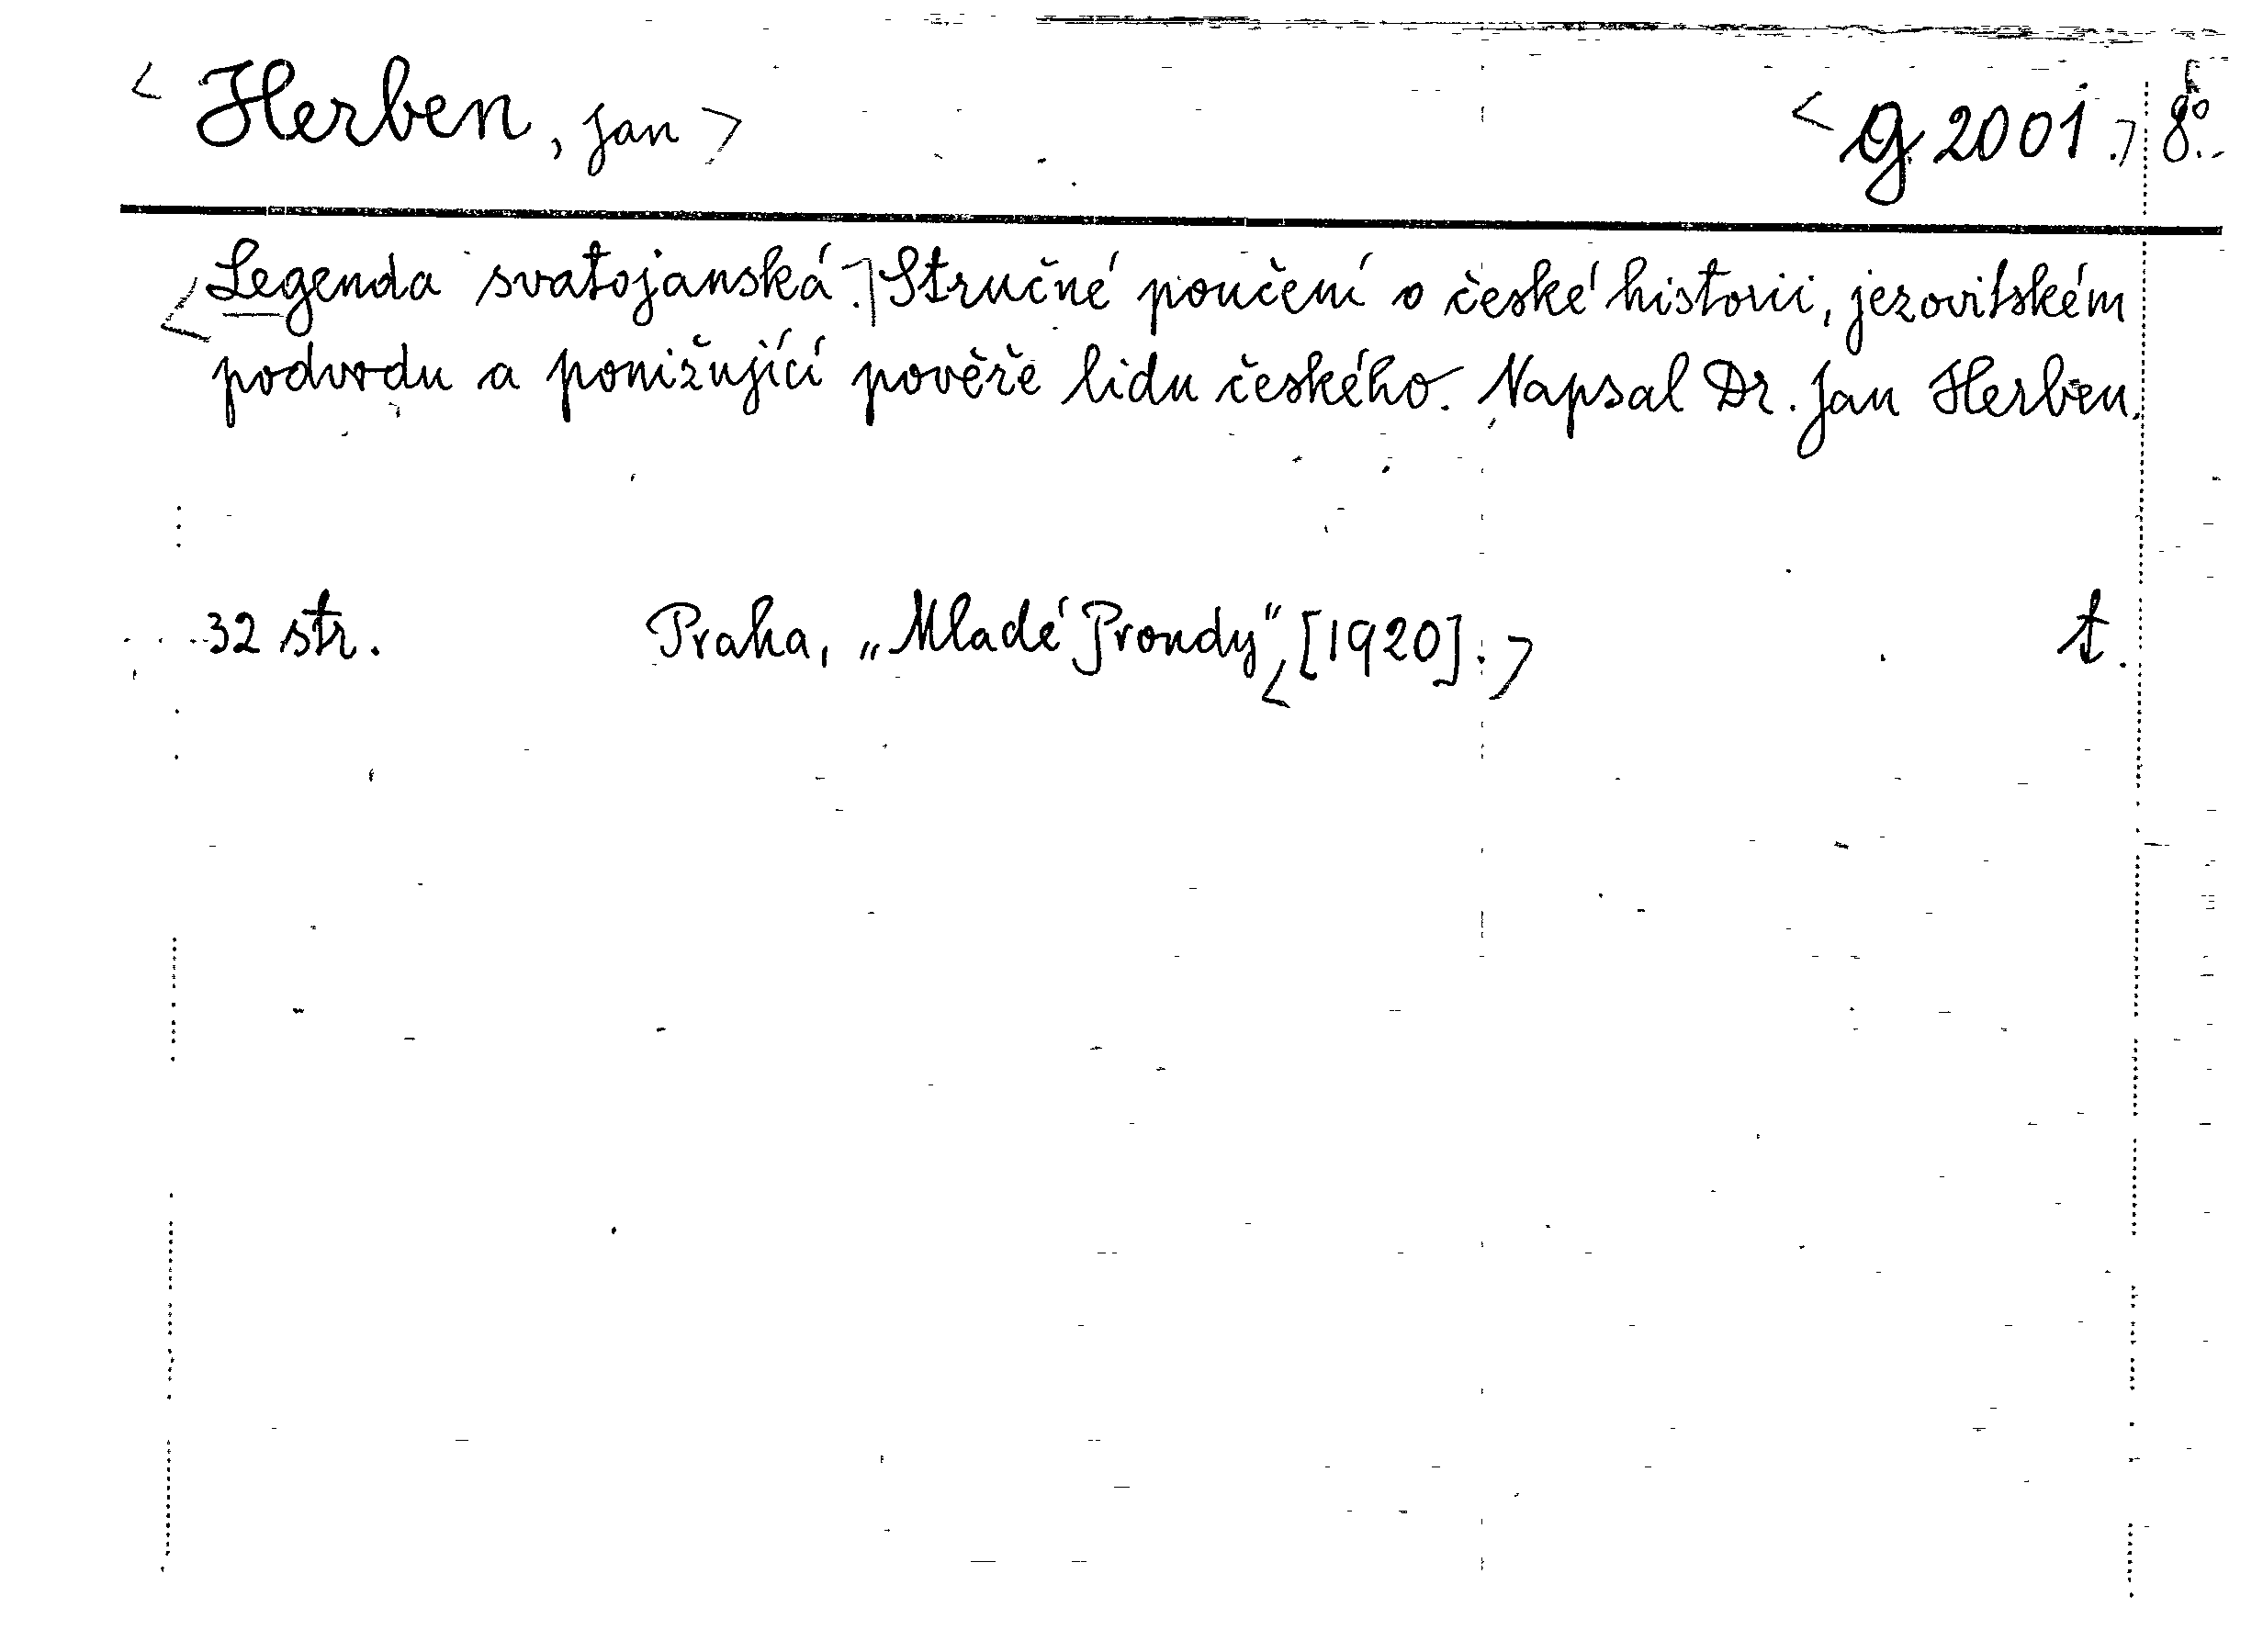 < Herben, Jan > < g 2001. > 8°.
< Legenda svatojanská. > Stručné poučení o české historii, jezovitském
podvodu a ponižující pověře lidu českého. Napsal Dr. Jan Herben.
32 str. Praha, „Mladé Proudy“, < [1920]. > t.